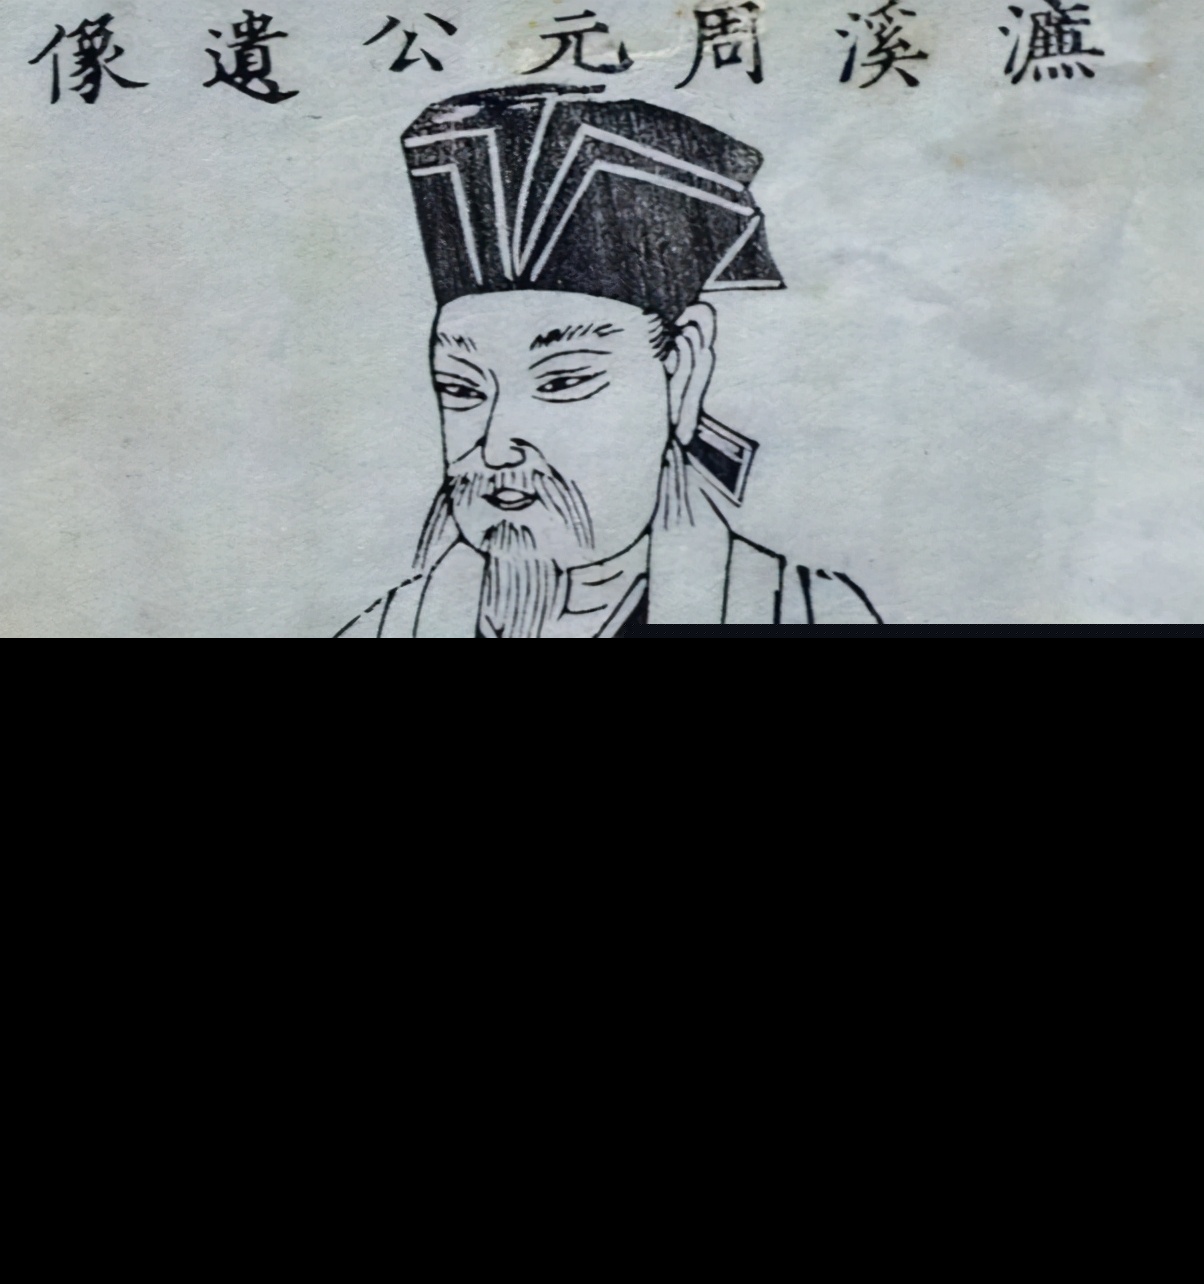 濂溪周元公遺像